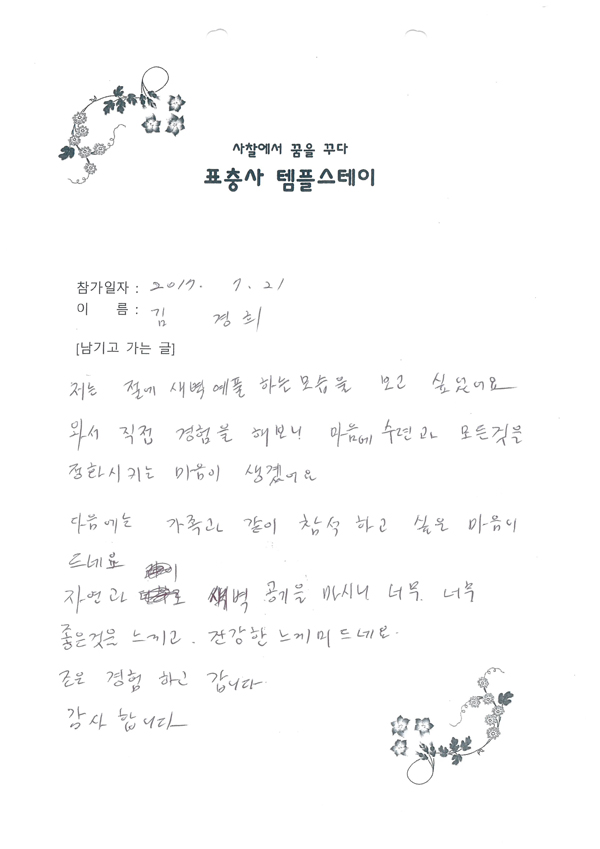 사찰에서 꿈을 꾸다
표충사 템플스테이
참가일자 : 2017. 7. 21
이 름 : 김 경희
[남기고 가는 글]
저는 절에 새벽예플 하는모습을 보고 싶었어요
와서 직접 경험을 해보니 마음에 수련과 모든것을
정화시키는 마음이 생겼어요
다음에는 가족과 같이 참석 하고 싶은 마음이
드네요
자연과 새벽 공기을 마시니 너무. 너무
좋은것을 느끼고. 건강한 느끼미 드네요.
조은 경험 하고 갑니다.
감사 합니다